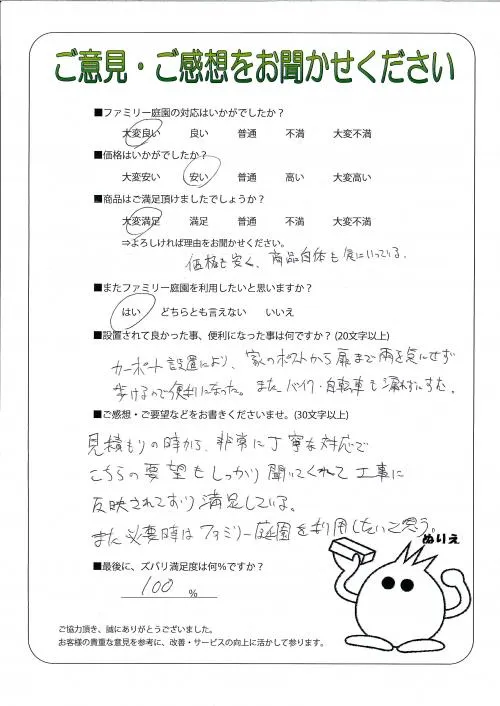 ご意見・ご感想をお聞かせください
■ファミリー庭園の対応はいかがでしたか？
大変良い 良い 普通 不満 大変不満
■価格はいかがでしたか？
大変安い 安い 普通 高い 大変高い
■商品はご満足頂けましたでしょうか？
大変満足 満足 普通 不満 大変不満
⇒よろしければ理由をお聞かせください。
価格も安く、商品自体も気にいっている。
■またファミリー庭園を利用したいと思いますか？
はい どちらとも言えない いいえ
■設置されて良かった事、便利になった事は何ですか？(20文字以上)
カーポート設置により、家のポストから扉まで雨を気にせず
歩けるので便利になった。またバイク・自転車も濡れずにすむ。
■ご感想・ご要望などをお書きくださいませ。(30文字以上)
見積もりの時から、非常に丁寧な対応で
こちらの要望もしっかり聞いてくれて工事に
反映されており満足している。
また必要時はファミリー庭園を利用したいと思う。
ぬりえ
■最後に、ズバリ満足度は何%ですか？
100 %
ご協力頂き、誠にありがとうございました。
お客様の貴重な意見を参考に、改善・サービスの向上に活かして参ります。